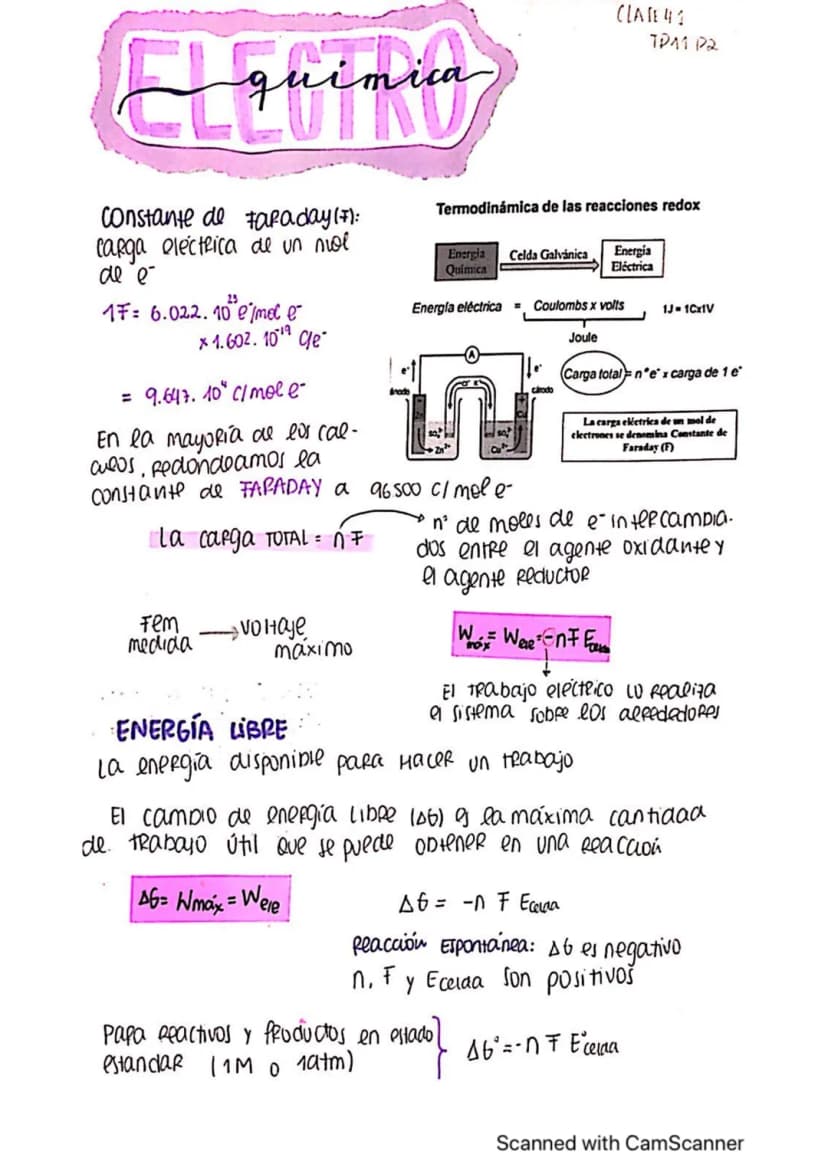 CLASE 41
TP11 P2
ELECTRO
química
Constante de FARADAY (F):
carga eléctrica de un mol
de e-
1F = 6.022. 10²³ e-/mol e-
x 1.602. 10⁻¹⁹ C/e-
= 9.647. 10⁴ C/mol e-
En la mayoría de los cal-
culos, redondeamos la
constante de FARADAY a 96500 C/mol e-
Termodinámica de las reacciones redox
Energía
Química
Celda Galvánica
Energía
Eléctrica
Energía eléctrica = Coulombs x volts
1J = 1Cx1V
Joule
A
e-
e-
ánodo
cátodo
Cl- K+
Carga total = n°e- x carga de 1 e-
SO₄²⁻
Zn²⁺
SO₄²⁻
Cu²⁺
La carga eléctrica de un mol de
electrones se denomina Constante de
Faraday (F)
La carga TOTAL = n F
n° de moles de e- intercambia-
dos entre el agente oxidante y
el agente reductor
Fem
medida
→ voltaje
máximo
Wmáx = Wele = -nF Ecelda
El trabajo eléctrico lo realiza
el sistema sobre los alrededores
ENERGÍA LIBRE
La energía disponible para hacer un trabajo
El cambio de energía libre (ΔG) es la máxima cantidad
de trabajo útil que se puede obtener en una reacción
ΔG = Wmáx = Wele
ΔG = -n F Ecelda
Reacción espontánea: ΔG es negativo
n, F y Ecelda son positivos
Para reactivos y productos en estado
estandar (1M o 1atm)
ΔG° = -n F E°celda
Scanned with CamScanner